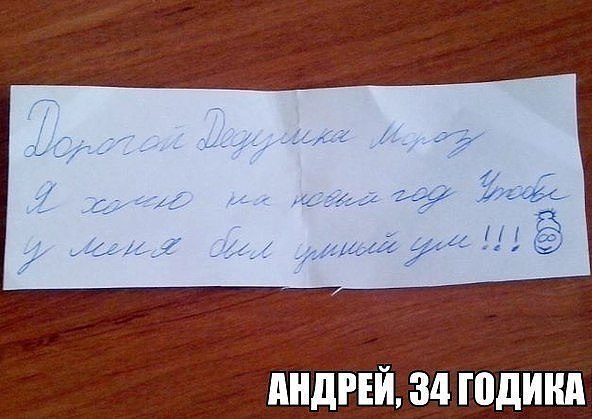 Дорогой Дедушка Мороз
Я хочю на новый год Чтобы
у меня был умный ум!!!
АНДРЕЙ, 34 ГОДИКА